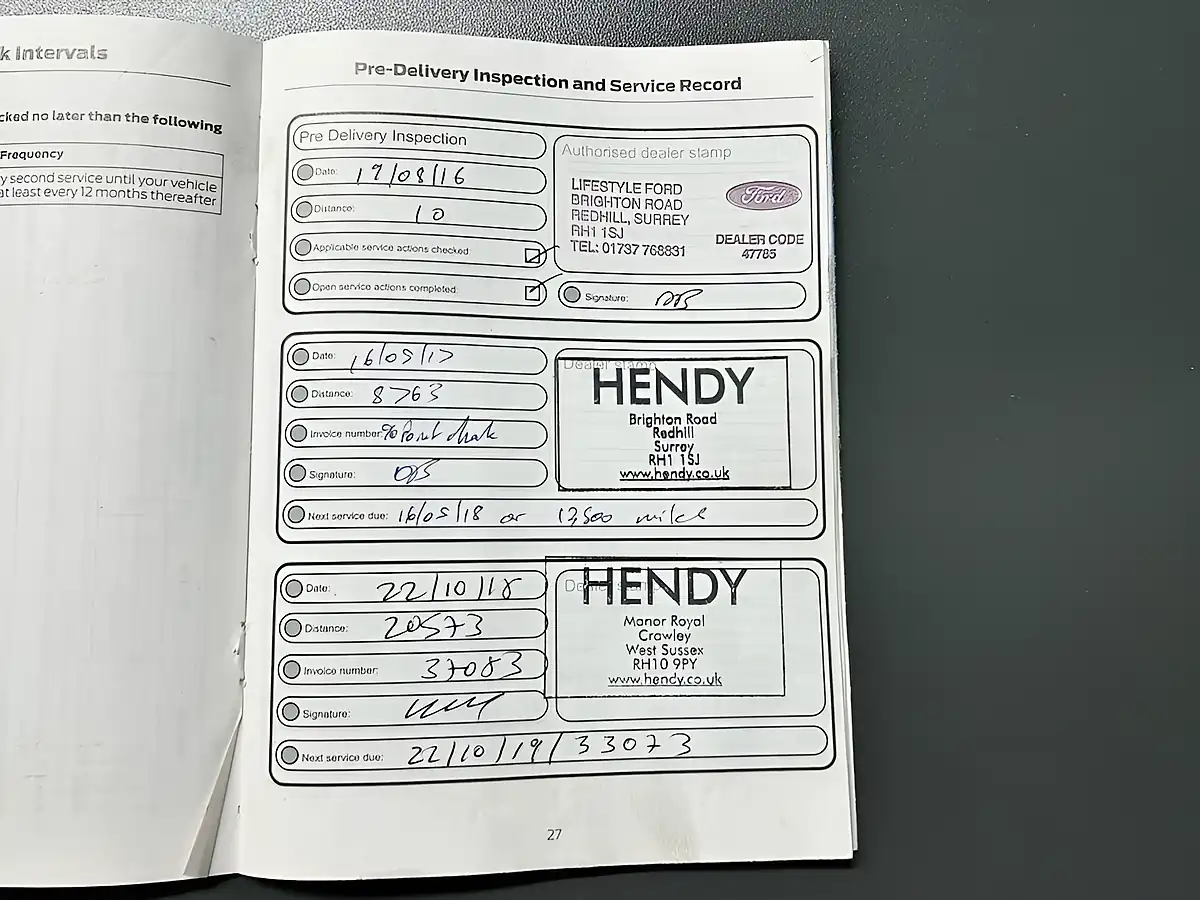 k Intervals
cked no later than the following
Frequency
y second service until your vehicle
at least every 12 months thereafter
Pre-Delivery Inspection and Service Record
Pre Delivery Inspection
Date: 19/08/16
Distance: 10
Applicable service actions checked:
Open service actions completed:
Authorised dealer stamp
LIFESTYLE FORD
BRIGHTON ROAD
REDHILL, SURREY
RH1 1SJ
TEL: 01737 768831
Ford
DEALER CODE
47785
Signature:
Date: 16/05/17
Distance: 8763
Invoice number:
Signature:
Next service due: 16/05/18 or 12,500 miles
Dealer stamp
HENDY
Brighton Road
Redhill
Surrey
RH1 1SJ
www.hendy.co.uk
Date: 22/10/18
Distance: 20573
Invoice number: 37083
Signature:
Next service due: 22/10/19/33073
Dealer stamp
HENDY
Manor Royal
Crawley
West Sussex
RH10 9PY
www.hendy.co.uk
27